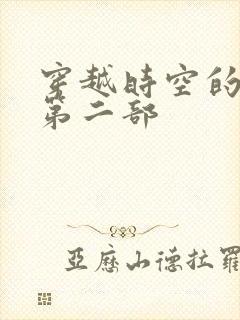 穿越時空的
第二部
亞歷山德拉羅